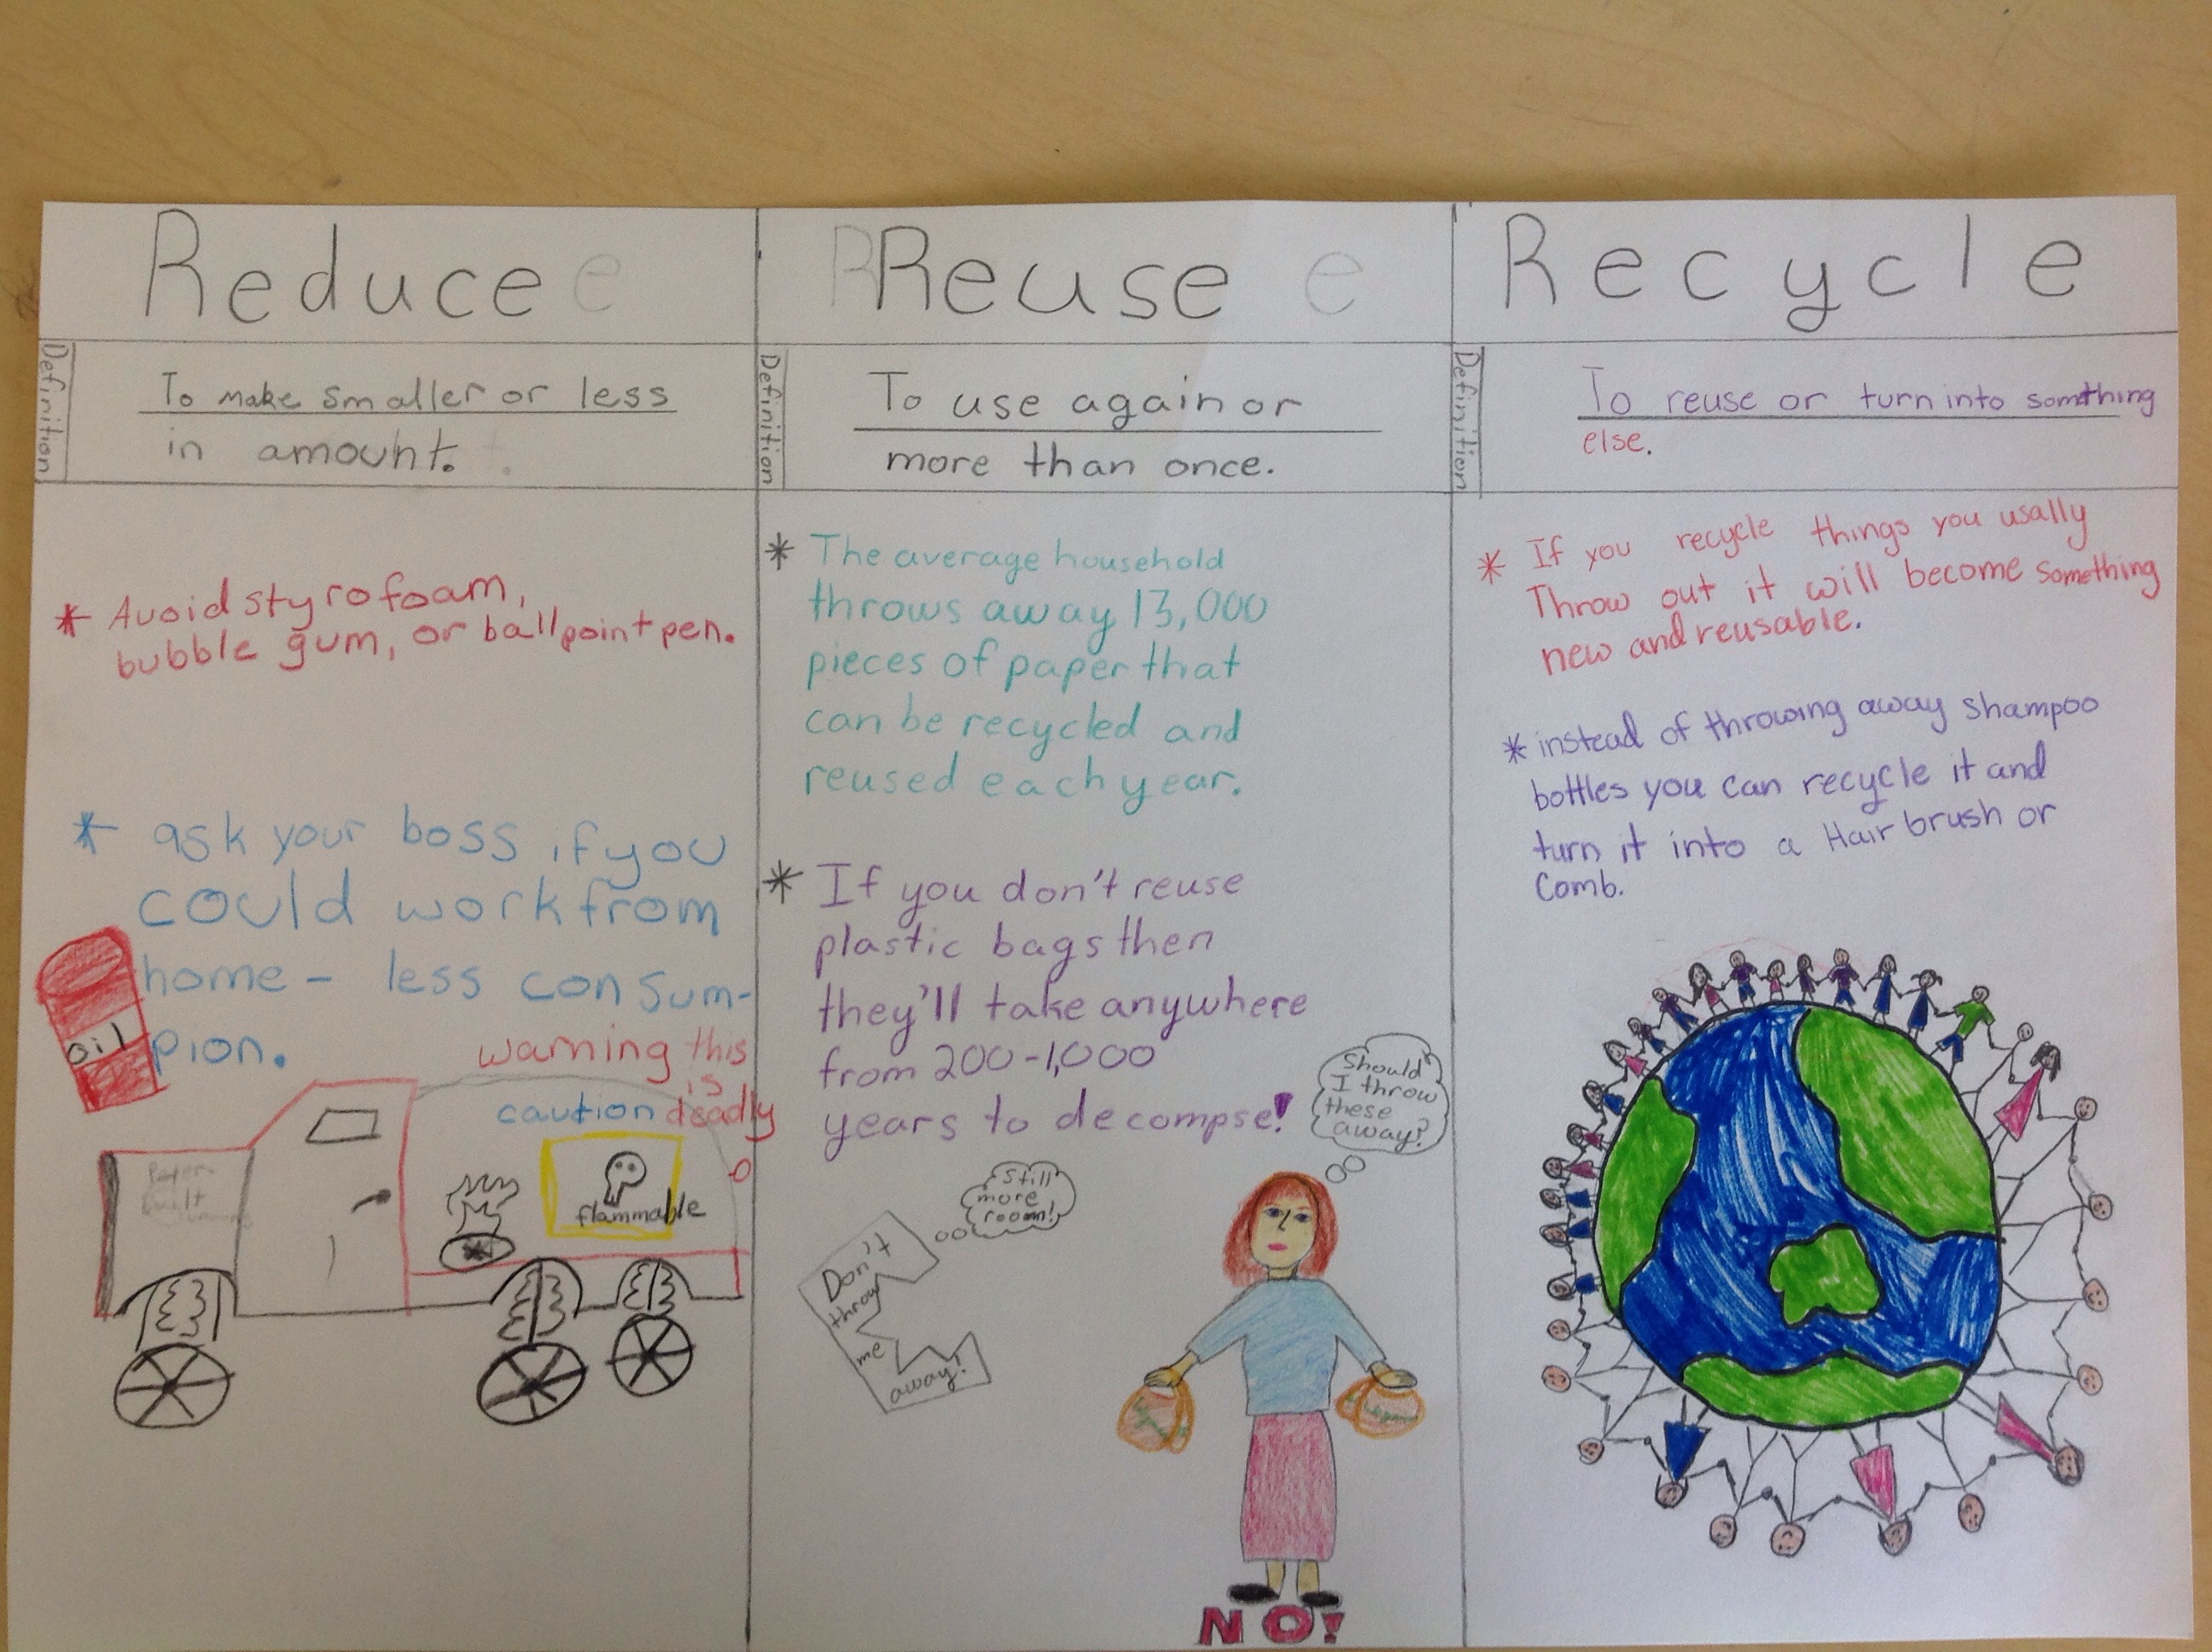 Reduce
Definition
To make smaller or less
in amount.
* Avoid styrofoam,
bubble gum, or ballpoint pen.
* ask your boss if you
could work from
home - less consum-
pion.
Oil
warning this
is
caution deadly
flammable
Reuse
Definition
To use again or
more than once.
* The average household
throws away 13,000
pieces of paper that
can be recycled and
reused each year.
* If you don't reuse
plastic bags then
they'll take anywhere
from 200-1,000
years to decompse!
Should
I throw
these
away?
Still
more
room!
Don't
throw
me
away!
NO!
Recycle
Definition
To reuse or turn into something
else.
* If you recycle things you usally
Throw out it will become something
new and reusable.
* instead of throwing away shampoo
bottles you can recycle it and
turn it into a Hair brush or
Comb.